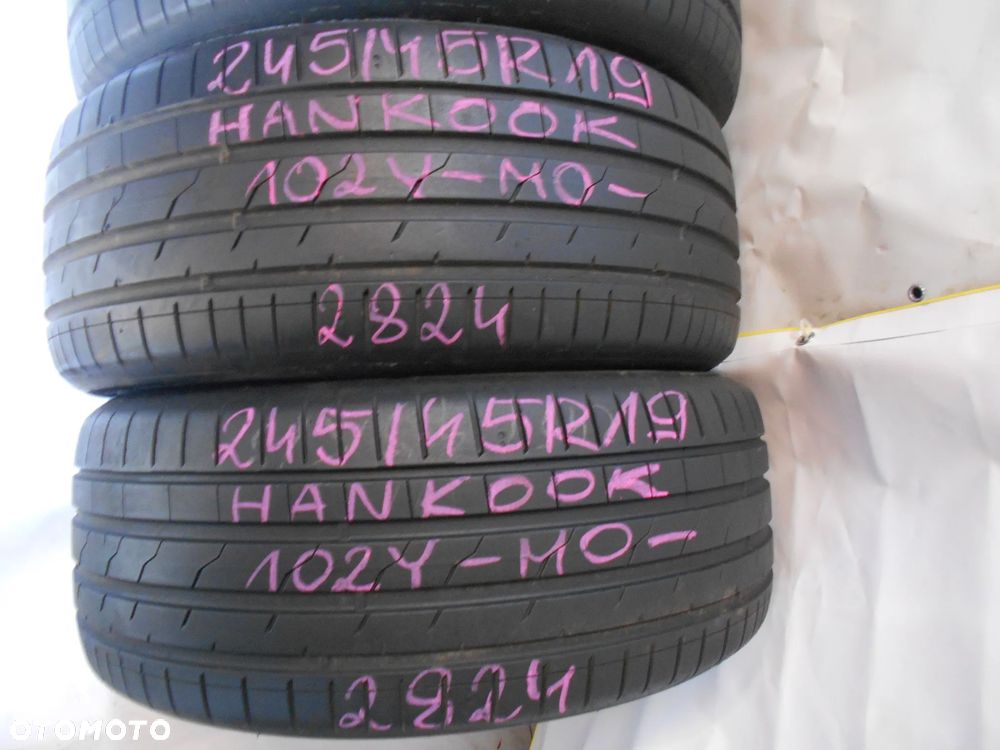 245/45R19
HANKOOK
102Y-MO-
2824
245/45R19
HANKOOK
102Y-MO-
2824
OTOMOTO